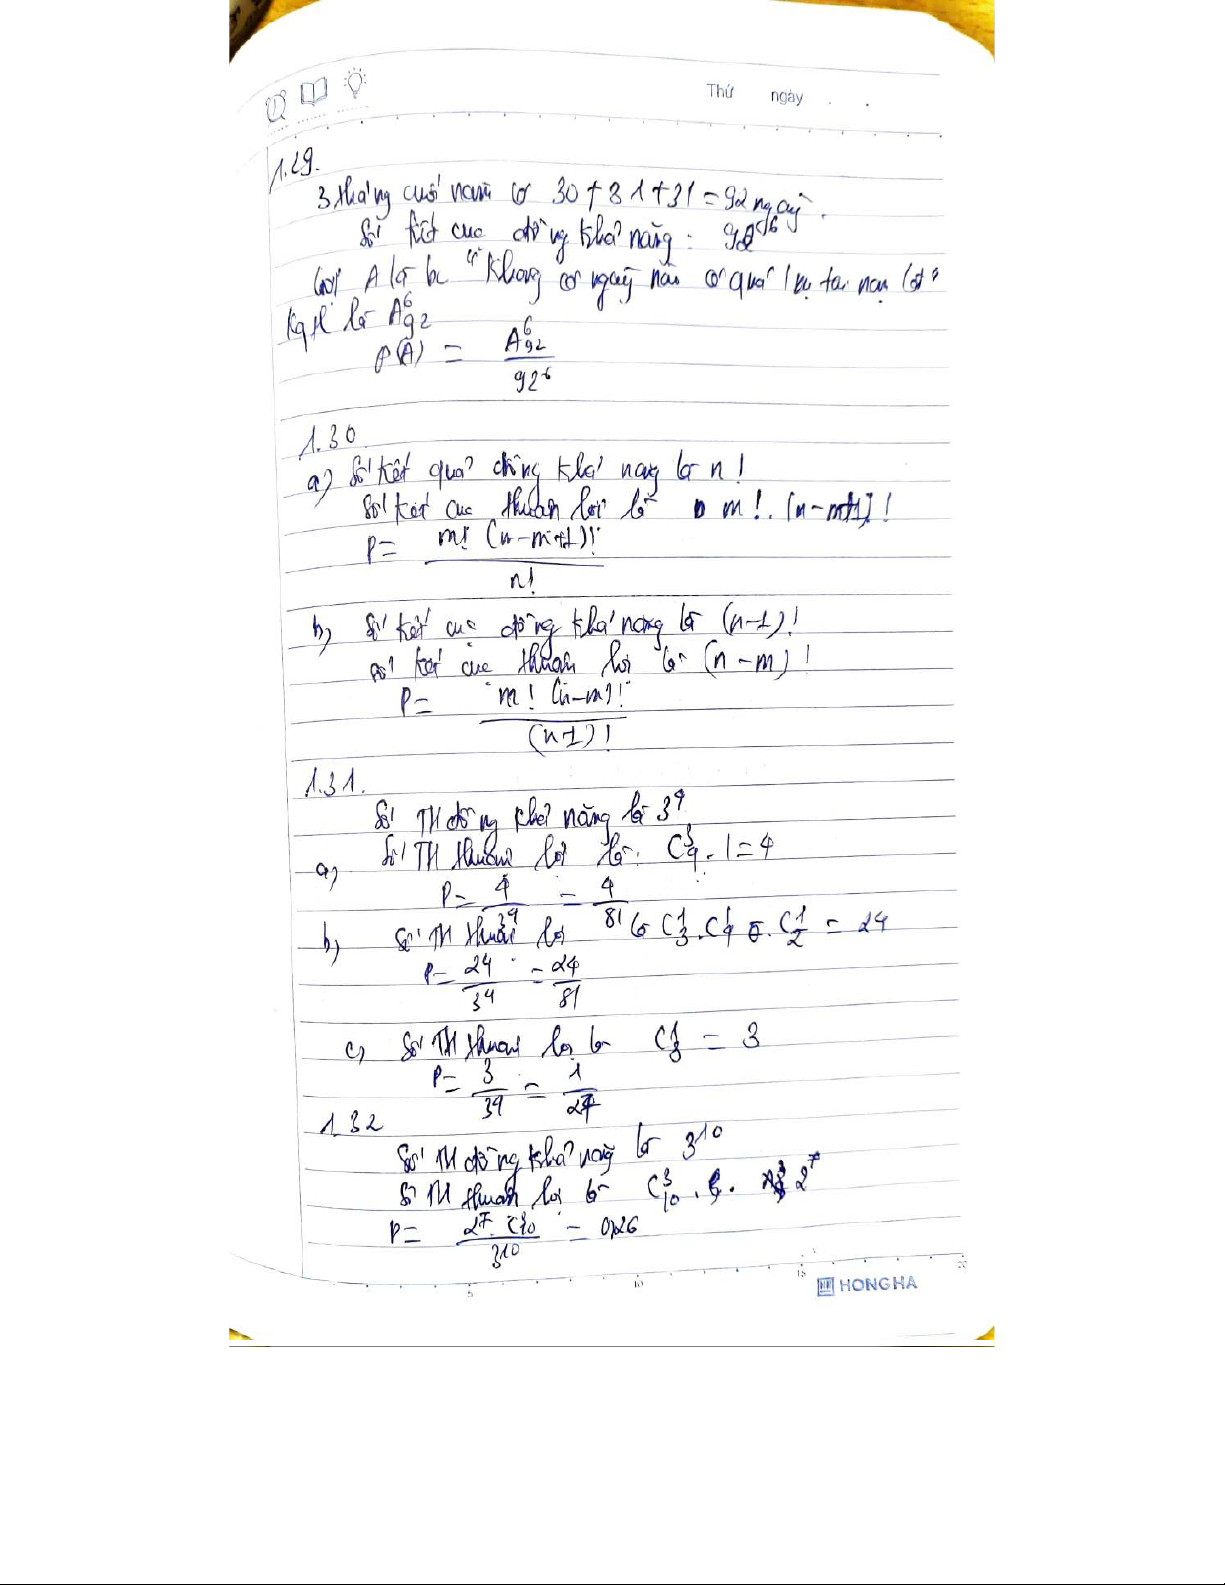 Thứ ngày
1.29.
3 tháng cuối năm có 30 + 31 + 31 = 92 ngày.
Số kết cục đồng khả năng: 92^6
Gọi A là bc "Không có ngày nào có quá 1 vụ tai nạn
là A^6_92
P(A) = A^6_92 / 92^6
1.30
a) Số kết quả đồng khả năng là n!
Số kết cục thuận lợi là m!. (n-m+1)!
P = m! (n-m+1)! / n!
b) Số kết cục đồng khả năng là (n-1)!
Số kết cục thuận lợi là (n-m)!
P = m! (n-m)! / (n-1)!
1.31.
Số TH đồng khả năng là 3^4
a) Số TH thuận lợi là: C^3_4 . 1 = 4
P = 4/3^4 = 4/81
b) Số TH thuận lợi là C^1_3 . C^1_4 . C^1_2 = 24
P = 24/3^4 = 24/81
c) Số TH thuận lợi là C^1_3 = 3
P = 3/3^4 = 1/27
1.32
Số TH đồng khả năng là 3^10
Số TH thuận lợi là C^3_10 . 2^7
P = 2^7 . C^3_10 / 3^10 = 0,26
5 10 15 20
HONG HA